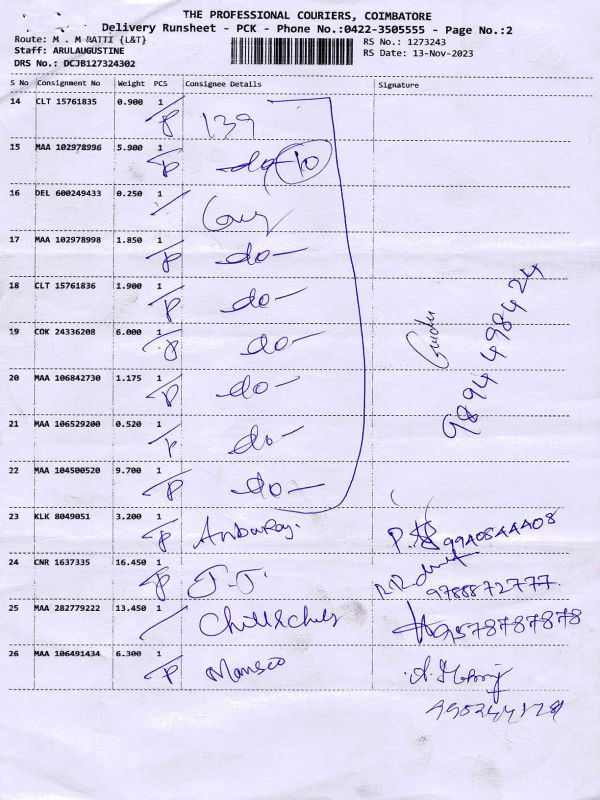 THE PROFESSIONAL COURIERS, COIMBATORE
Delivery Runsheet - PCK - Phone No.:0422-3505555 - Page No.:2
Route: M . M BATTI {L&T}
RS No.: 1273243
Staff: ARULAUGUSTINE
RS Date: 13-Nov-2023
DRS No.: DCJB127324302
S No Consignment No Weight PCS Consignee Details Signature
14 CLT 15761835 0.900 1
P 139
15 MAA 102978996 5.900 1
P do- 10
16 DEL 600249433 0.250 1
17 MAA 102978998 1.850 1
P do-
18 CLT 15761836 1.900 1
P do-
19 COK 24336208 6.000 1
P do-
20 MAA 106842730 1.175 1
P do-
21 MAA 106529200 0.520 1
P do-
22 MAA 104500520 9.700 1
P do-
9894 498424
23 KLK 8049051 3.200 1
P
24 CNR 1637335 16.450 1
P J.J.
9788872777.
25 MAA 282779222 13.450 1
9578787878
26 MAA 106491434 6.300 1
P Manseo